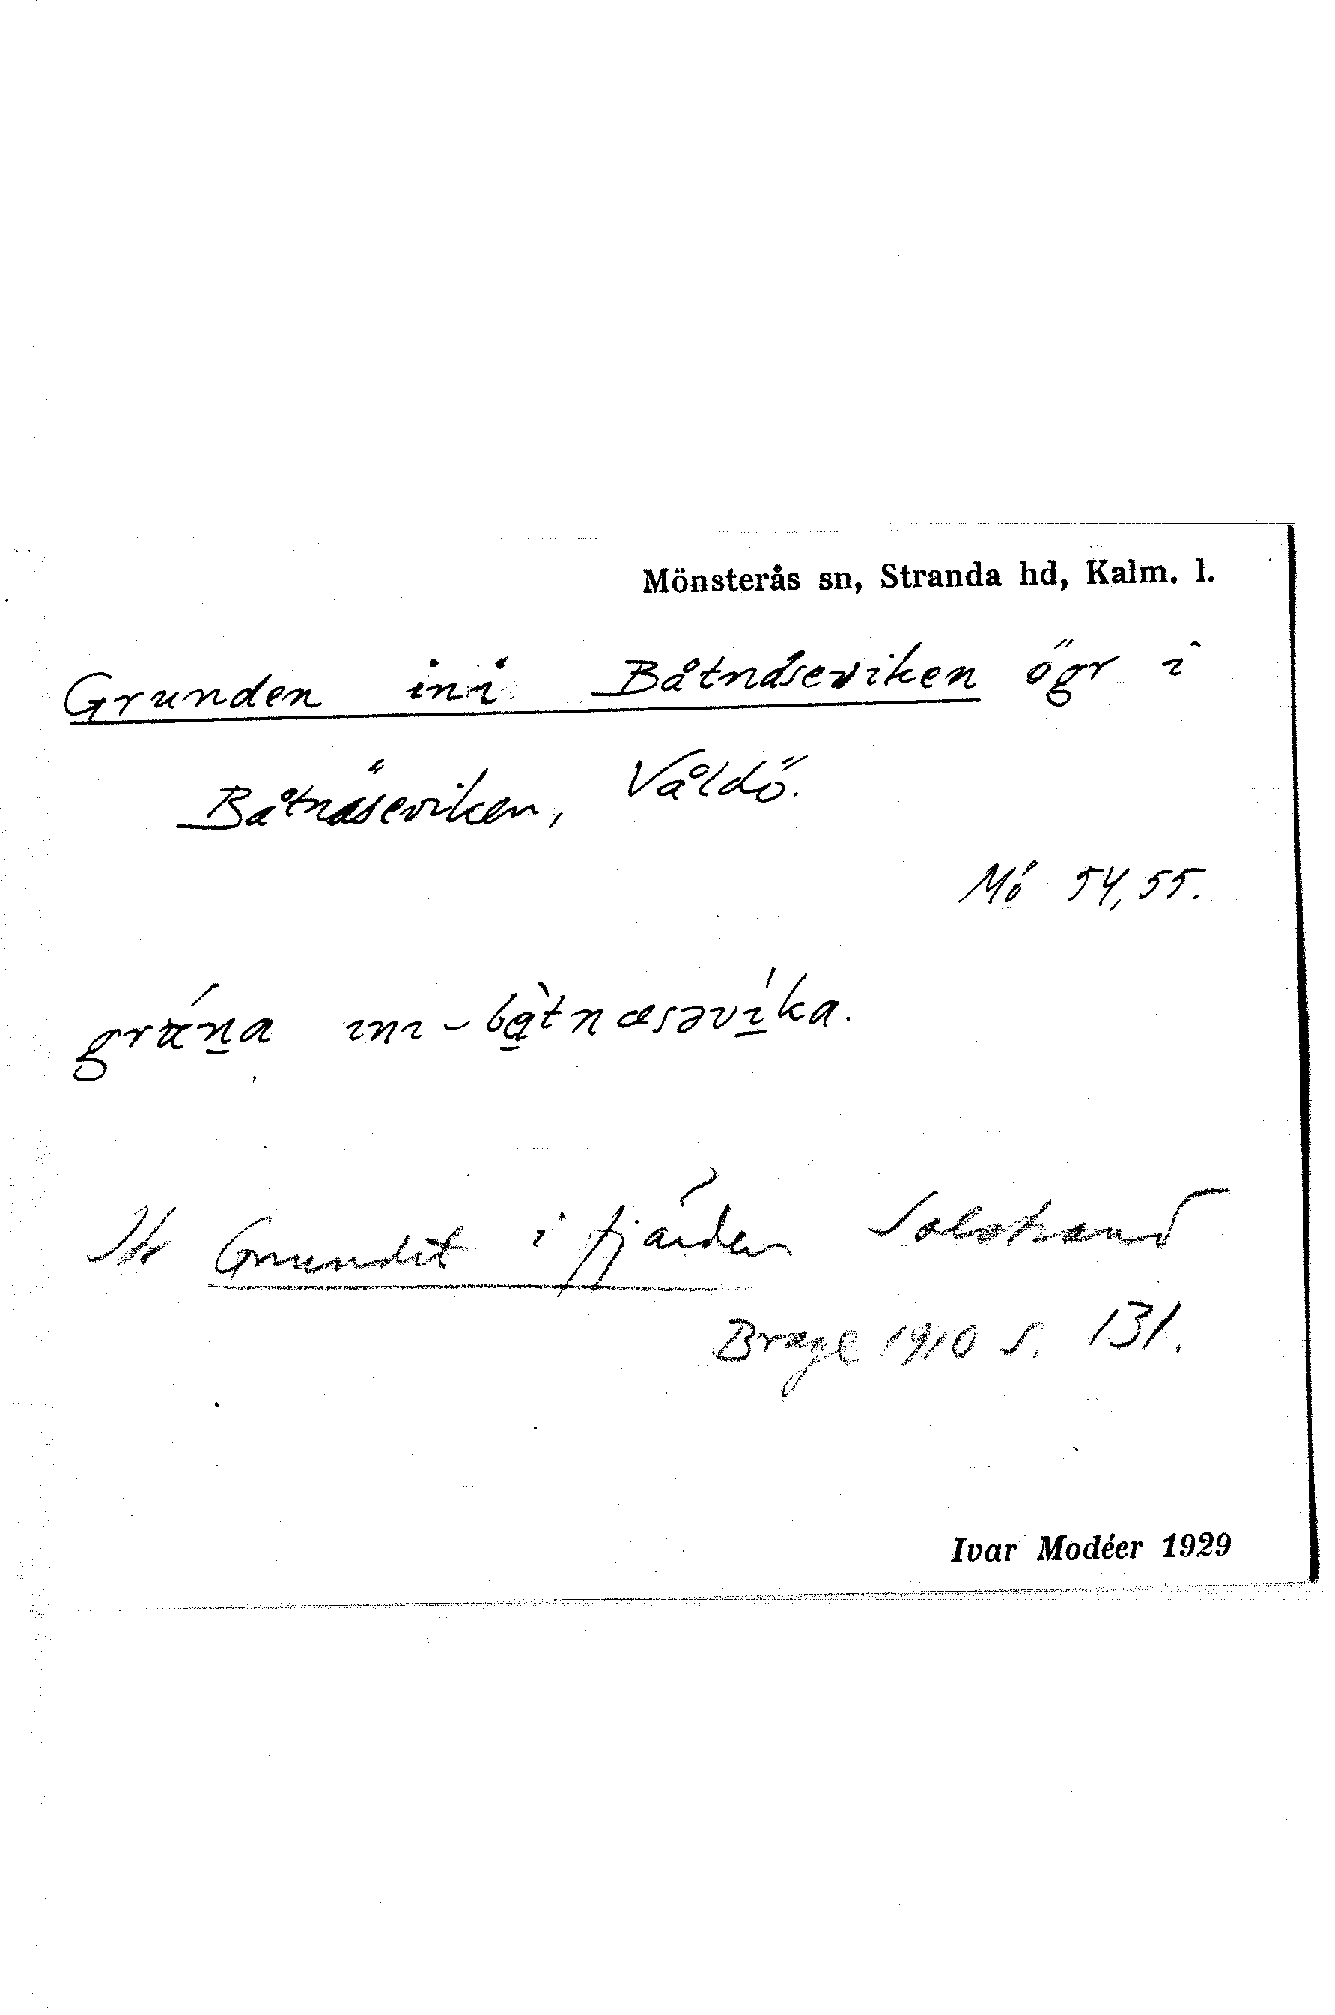 Mönsterås sn, Stranda hd, Kalm. l.
Grunden ini Båtnäseviken ögr i
Båtnäseviken, Våldö.
Mö 54,55.
ini-båtnæsəvíka.
Grundet i fjärden
Brage 1910 s. 131.
Ivar Modéer 1929